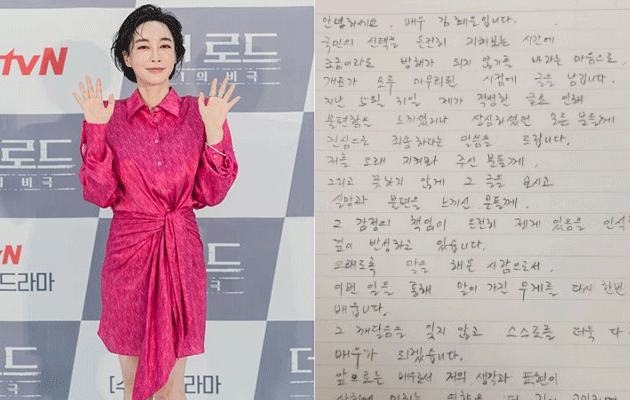 tvN
로드
의 비극
로드
비극
N
드라마
라마
더
안녕하세요. 배우 김혜은입니다.
국민의 선택을 온전히 지켜보는 시간에
조금이라도 방해가 되지 않기를 바라는 마음으로,
개표가 모두 마무리된 시점에 글을 남깁니다.
지난 5월 31일 제가 작성한 글로 인해
불편함을 느끼셨거나 상심하셨던 모든 분들께
진심으로 죄송하다는 말씀을 드립니다.
저를 오래 지켜봐 주신 분들께,
그리고 뜻하지 않게 그 글을 보시고
실망과 불편을 느끼신 분들께,
그 감정의 책임이 온전히 제게 있음을 인식
깊이 반성하고 있습니다.
오래도록 말을 해온 사람으로서,
이번 일을 통해 말이 가진 무게를 다시 한번
배웁니다.
그 깨달음을 잊지 않고 스스로를 더욱 다
배우가 되겠습니다.
앞으로는 배우로서 저의 생각과 표현이